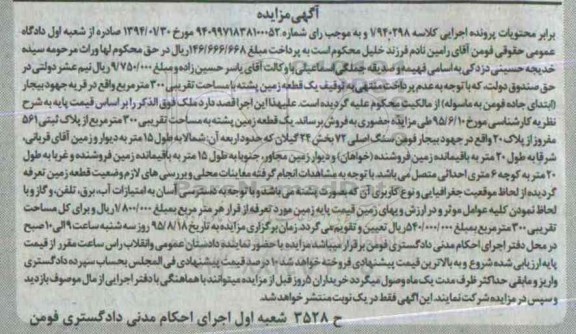 آگهی مزایده
برابر محتویات پرونده اجرایی کلاسه ۱/۹۴۰۲۹۸ و به موجب رای شماره ۹۴۰۹۹۷۱۸۳۸۱۰۰۰۵۲ مورخ ۱۳۹۴/۰۱/۳۰ صادره از شعبه اول دادگاه
عمومی حقوقی فومن آقای رامین نادم فرزند خلیل محکوم است به پرداخت مبلغ ۱۴۶/۶۶۶/۶۶۸ ریال در حق محکوم لها وراث مرحومه سیده
خدیجه حسینی دزدکی به اسامی فهیمه و صدیقه جملگی اسماعیلی با وکالت آقای یاسر حسین زاده و مبلغ ۹/۷۵۰/۰۰۰ ریال نیم عشر دولتی در
حق صندوق دولت، که با توجه به عدم پرداخت منتهی به توقیف یک قطعه زمین پشته با مساحت تقریبی ۳۰۰ متر مربع واقع در قریه جهود بیجار
(ابتدای جاده فومن به ماسوله) از مالکیت محکوم علیه گردیده است. علیهذا این اجرا قصد دارد ملک فوق الذکر را بر اساس قیمت پایه به شرح
نظریه کارشناسی مورخ ۹۵/۶/۱۰ طی مزایده حضوری به فروش برساند. یک قطعه زمین پشته به مساحت تقریبی ۳۰۰ متر مربع از پلاک ثبتی ۵۶۱
مفروز از پلاک ۲۰ واقع در جهود بیجار فومن سنگ اصلی ۷۲ بخش ۲۴ گیلان که حدود اربعه آن: شمالا به طول ۱۵ متر به دیوار و زمین آقای قربانی،
شرقا به طول ۲۰ متر به باقیمانده زمین فروشنده (خواهان) و دیوار زمین مجاور، جنوبا به طول ۱۵ متر به باقیمانده زمین فروشنده و غربا به طول
۲۰ متر به کوچه ۶ متری احداثی متصل می باشد. با توجه به مشاهدات انجام گرفته معاینات محلی و بررسی های لازم وضعیت قطعه زمین تعرفه
گردیده از لحاظ موقعیت جغرافیایی و نوع کاربری آن که بصورت پشته می باشد و با توجه به دسترسی آسان به امتیازات آب، برق، تلفن، و گاز و با
لحاظ نمودن کلیه عوامل موثر و در ارزش و بهای زمین قیمت پایه زمین مورد تعرفه از قرار هر متر مربع بمبلغ ۱/۸۰۰/۰۰۰ ریال و برای کل مساحت
تقریبی ۳۰۰ متر مربع بمبلغ ۵۴۰/۰۰۰/۰۰۰ ریال تعیین و تقویم می گردد. زمان برگزاری مزایده به تاریخ ۹۵/۸/۱۸ روز سه شنبه ساعت ۹ الی ۱۰ صبح
در محل دفتر اجرای احکام مدنی دادگستری فومن برقرار میباشد مزایده با حضور نماینده دادستان عمومی و انقلاب راس ساعت مقرر از قیمت
پایه ارزیابی شده شروع و به بالاترین قیمت پیشنهادی فروخته خواهد شد. ۱۰ درصد قیمت پیشنهادی فی المجلس بحساب سپرده دادگستری
واریز و مابقی حداکثر ظرف مدت یک ماه وصول میگردد خریداران ۵ روز قبل از مزایده میتوانند با هماهنگی با دفتر اجرایی از مال موصوف بازدید
و سپس در مزایده شرکت نمایند. این آگهی فقط در یک نوبت منتشر خواهد شد.
ح ۳۵۲۸ شعبه اول اجرای احکام مدنی دادگستری فومن